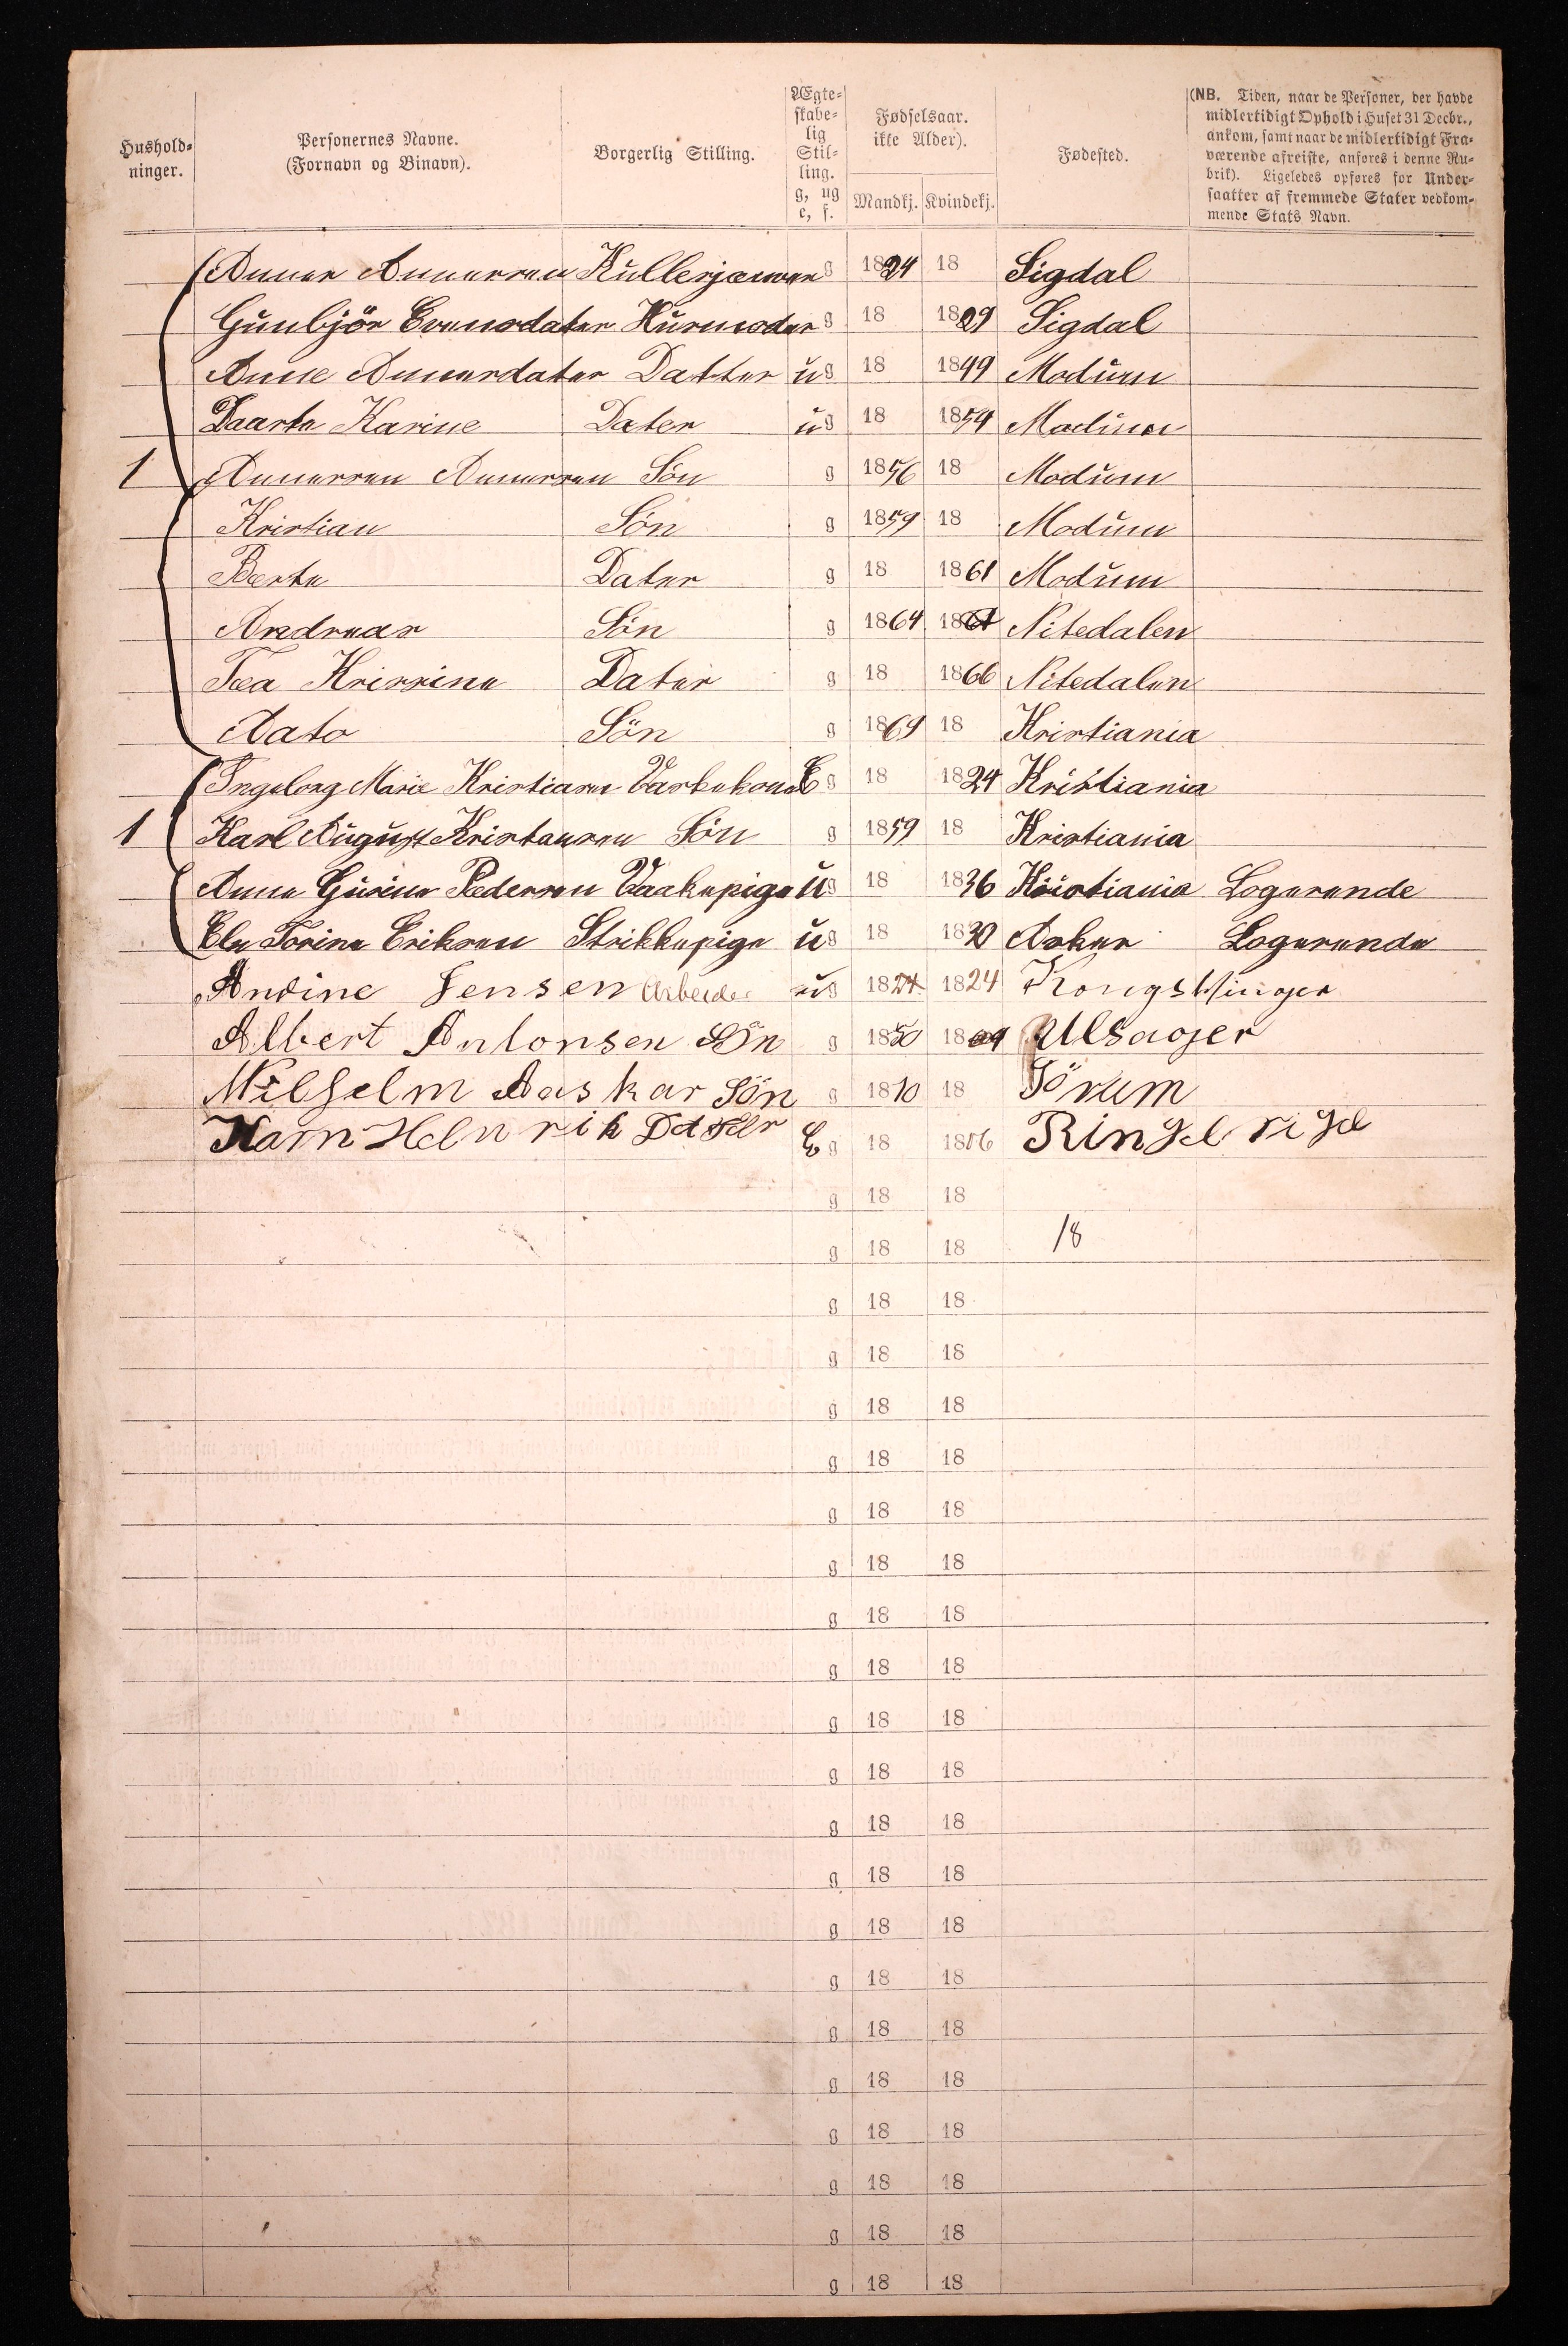 Hushold-
ninger.
Personernes Navne.
(Fornavn og Binavn).
Borgerlig Stilling.
Ægte-
skabe-
lig
Stil-
ling.
g, ug
e, f.
Fødselsaar.
ikke Alder).
Mandkj. Kvindekj.
Fødested.
(NB. Tiden, naar de Personer, der havde
midlertidigt Ophold i Huset 31 Decbr.,
ankom, samt naar de midlertidigt Fra-
værende afreiste, anføres i denne Ru-
brik). Ligeledes opføres for Under-
saatter af fremmede Stater vedkom-
mende Stats Navn.
g 1824 18 Sigdal
Gunbjör g 18 1829 Sigdal
Anne Datter ug 18 1849 Modum
Daarta Karine Dater ug 18 1854 Modum
1 Sön g 1856 18 Modum
Kristian Sön g 1859 18 Modum
Berte Dater g 18 1861 Modum
Andreas Sön g 1864 18 Nitedalen
Tea Dater g 18 1866 Nitedalen
Aato Sön g 1869 18 Kristiania
Ingeborg Marie Kristiansen E g 18 1824 Kristiania
1 Karl August Sön g 1859 18 Kristiania
Anne Pedersen ug 18 1836 Kristiania Logerende
Eriksen Strikkepige ug 18 1830 Asker Logerende
Andine Jensen Arbeider ug 18 1824 Kongsvinger
Albert Antonsen Sön g 1850 18 Ulsager
Wilhelm Aaskar Sön g 1870 18 Sörum
g 18 18 Ringerige
g 18 18
g 18 18 18
g 18 18
g 18 18
g 18 18
g 18 18
g 18 18
g 18 18
g 18 18
g 18 18
g 18 18
g 18 18
g 18 18
g 18 18
g 18 18
g 18 18
g 18 18
g 18 18
g 18 18
g 18 18
g 18 18
g 18 18